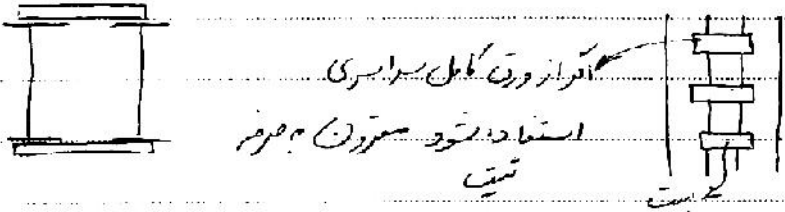 اگر از ورق کامل سراسری
استفاده شود مقرون به صرفه
نیست
بست